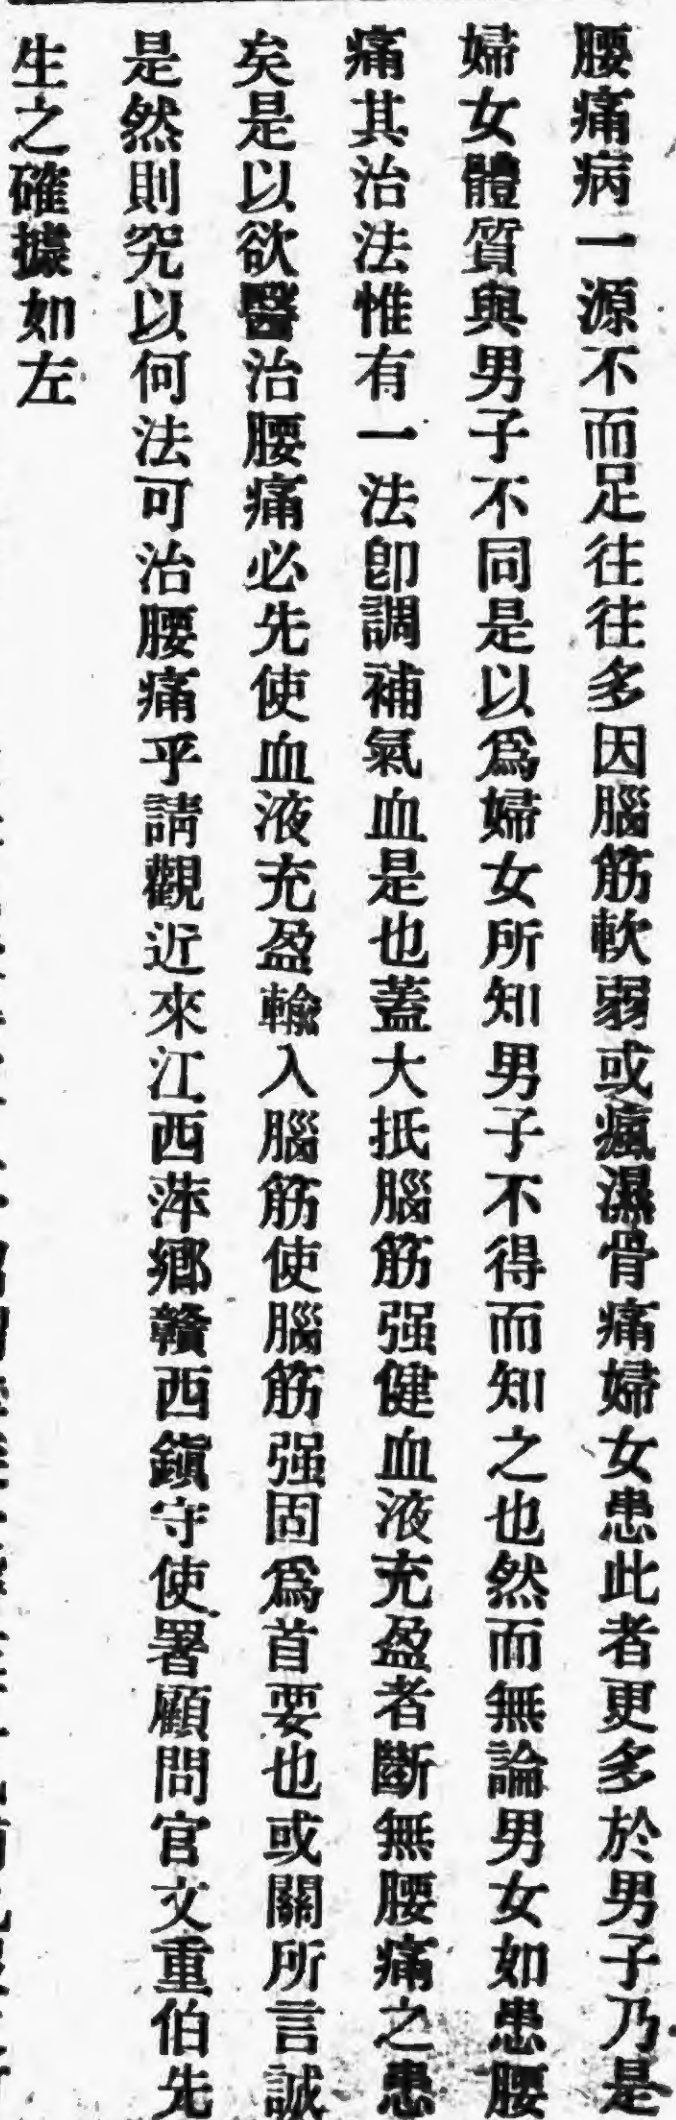 腰痛病一源不而足往往多因腦筋軟弱或瘋濕骨痛婦女患此者更多於男子乃是
婦女體質與男子不同是以爲婦女所知男子不得而知之也然而無論男女如患腰
痛其治法惟有一法卽調補氣血是也蓋大抵腦筋强健血液充盈者斷無腰痛之患
矣是以欲醫治腰痛必先使血液充盈輸入腦筋使腦筋强固爲首要也或關所言誠
是然則究以何法可治腰痛乎請觀近來江西萍鄉贛西鎮守使署顧問官文重伯先
生之確據如左